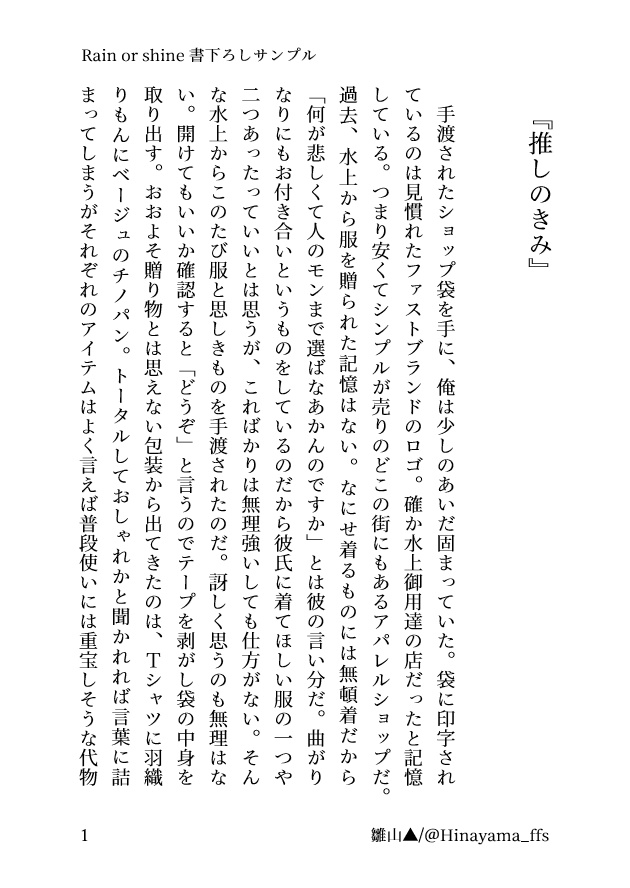 Rain or shine 書下ろしサンプル
『推しのきみ』
　手渡されたショップ袋を手に、俺は少しのあいだ固まっていた。袋に印字され
ているのは見慣れたファストブランドのロゴ。確か水上御用達の店だったと記憶
している。つまり安くてシンプルが売りのどこの街にもあるアパレルショップだ。
過去、水上から服を贈られた記憶はない。なにせ着るものには無頓着だから
「何が悲しくて人のモンまで選ばなあかんのですか」とは彼の言い分だ。曲がり
なりにもお付き合いというものをしているのだから彼氏に着てほしい服の一つや
二つあったっていいとは思うが、こればかりは無理強いしても仕方がない。そん
な水上からこのたび服と思しきものを手渡されたのだ。訝しく思うのも無理はな
い。開けてもいいか確認すると「どうぞ」と言うのでテープを剥がし袋の中身を
取り出す。おおよそ贈り物とは思えない包装から出てきたのは、Tシャツに羽織
りもんにベージュのチノパン。トータルしておしゃれかと聞かれれば言葉に詰
まってしまうがそれぞれのアイテムはよく言えば普段使いには重宝しそうな代物
1
雛山▲/@Hinayama_ffs